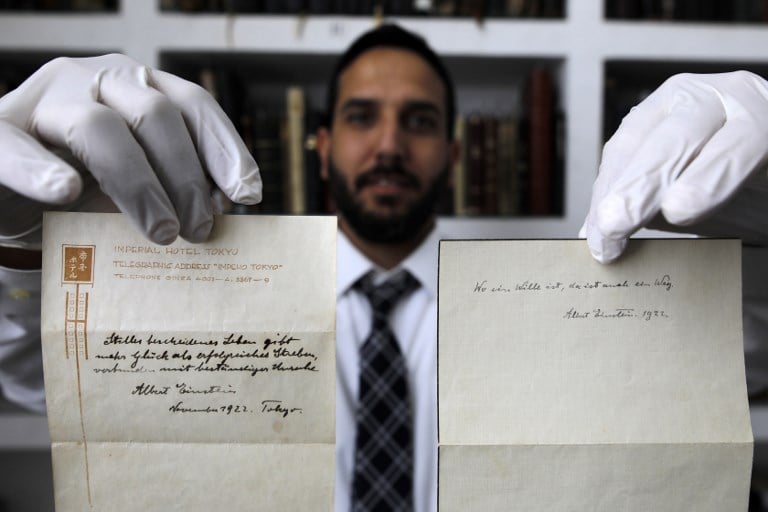 IMPERIAL HOTEL TOKYO
TELEGRAPHIC ADDRESS "IMPEHO TOKYO"
TELEPHONE GINZA 4001-A. 3367-9
帝国
ホテル
Stilles bescheidenes Leben gibt
mehr Glück als erfolgreiches Streben,
verbunden mit beständiger Unruhe
Albert Einstein
November 1922. Tokyo.
Wo ein Wille ist, da ist auch ein Weg.
Albert Einstein. 1922.